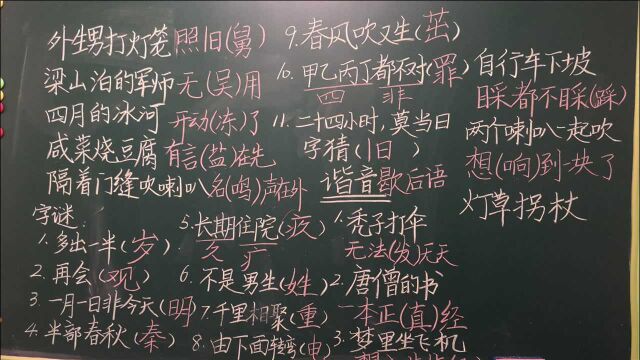 外生男打灯笼照旧(舅)
梁山泊的军师无(吴)用
四月的冰河 开动(冻)了
咸菜烧豆腐 有言(盐)在先
隔着门缝吹喇叭 名(鸣)声在外
字谜
1.多出一半(岁)
2.再会(观)
3.一月一日非今天(明)
4.半部春秋(秦)
5.长期住院(疚)
久 疒
6.不是男生(姓)
7.千里相聚(重)
8.由下面转弯(电)
9.春风吹又生(茁)
10.甲乙丙丁都不对(罪)
四 非
11.二十四小时,莫当日
字猜(旧)
谐音歇后语
1.秃子打伞
无法(发)无天
2.唐僧的书
一本正(真)经
3.梦里坐飞机
自行车下坡
睬都不睬(踩)
两个喇叭一起吹
想(响)到一块了
灯草拐杖